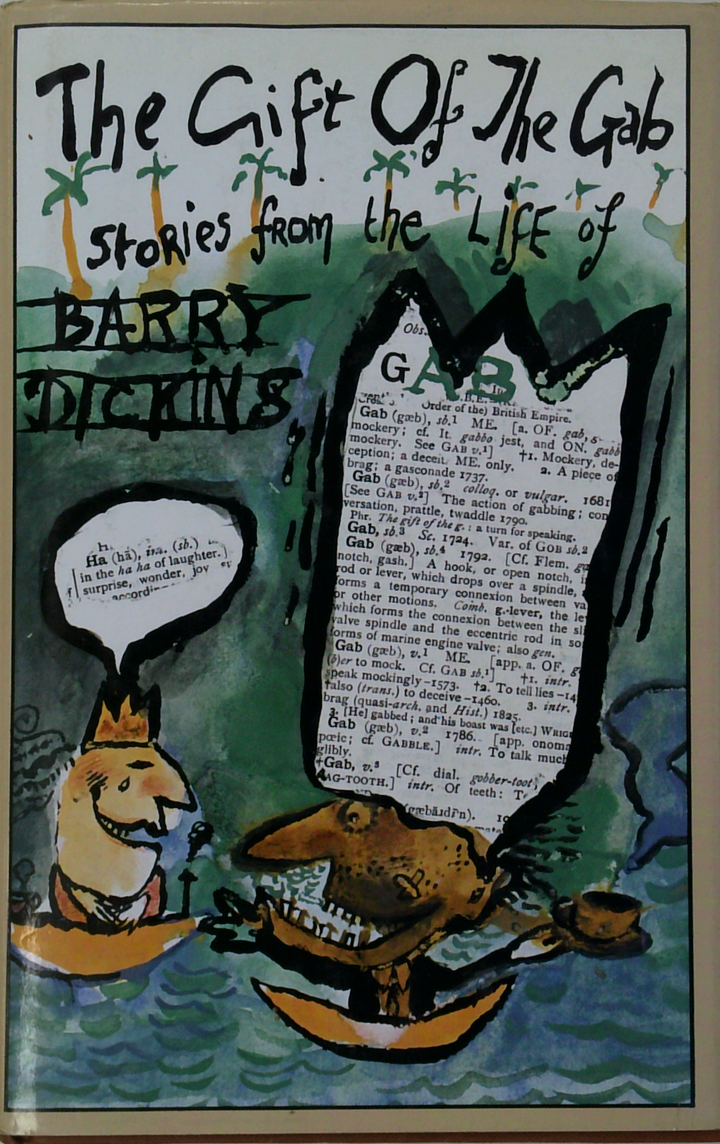 The Gift Of The Gab
stories from the LIfE of
BARRY
DICKINS
Obs.
GAB
Order of the) British Empire.
Gab (gæb), sb.¹ ME. [a. OF. gab,
mockery; cf. It. gabbo jest, and ON. gabb
mockery. See GAB v.¹] †1. Mockery, de-
ception; a deceit. ME. only. 2. A piece of
brag; a gasconade 1737.
Gab (gæb), sb.² colloq. or vulgar. 1681
[See GAB v.²] The action of gabbing; con
versation, prattle, twaddle 1790.
Phr. The gift of the g.: a turn for speaking.
Gab, sb.³ Sc. 1724. Var. of GOB sb.²
Gab (gæb), sb.⁴ 1792. [Cf. Flem.
notch, gash.] A hook, or open notch, i
rod or lever, which drops over a spindle,
forms a temporary connexion between va
or other motions. Comb. g.-lever, the le
which forms the connexion between the sli
valve spindle and the eccentric rod in so
forms of marine engine valve; also gen.
Gab (gæb), v.¹ ME. [app. a. OF. g
(b)er to mock. Cf. GAB sb.¹] †1. intr.
speak mockingly –1573. †2. To tell lies –14
†also (trans.) to deceive –1460. 3. intr.
brag (quasi-arch. and Hist.) 1825.
3. [He] gabbed; and his boast was [etc.] WRIG
Gab (gæb), v.² 1786. [app. onoma
pœic; cf. GABBLE.] intr. To talk much
glibly.
†Gab, v.³ [Cf. dial. gobber-toot
GAG-TOOTH.] intr. Of teeth: T
H.
Ha (hā), int. (sb.)
in the ha ha of laughter.]
surprise, wonder, joy
accordin